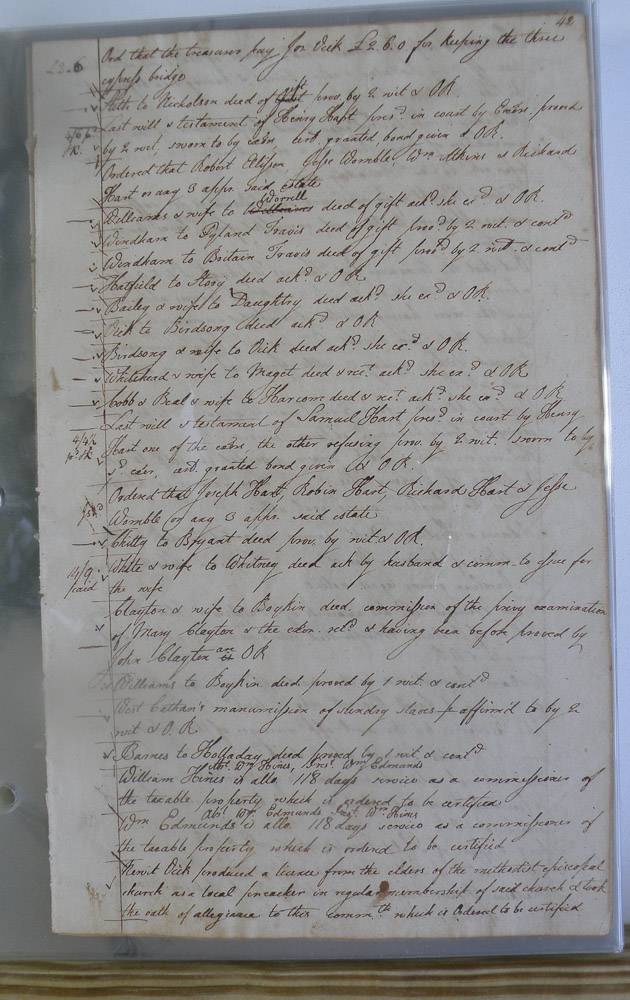 42
£2.6 Ord that the treasurer pay Jos Vick £2.6.0 for keeping the three
cypress bridge
to Nicholson deed of gift prov. by 2 wit & OR.
Last will & testament of Henry Hart pres.d in court by Exōrs, proved
by 2 wit, sworn to by exōrs, cert. granted bond given & OR.
Ordered that Robert Jesse Womble, Wm Atkins & Richard
Hart or any 3 appr. said estate
Williams & wife to Worrell deed of gift ack.d she ex.d & OR.
Windham to Pyland Travis deed of gift prov.d by 2 wit. & cont.d
Windham to Britain Travis deed of gift prov.d by 2 wit & cont.d
Hatfield to Story deed ack.d & OR
Bailey & wife to Daughtry deed ack.d she ex.d & OR.
Vick to Birdsong deed ack.d & OR
Birdsong & wife to Vick deed ack.d she ex.d & OR.
Whitehead & wife to Maget deed & rec.t ack.d she ex.d & OR
Cobb & Beal & wife to Harcome deed & rec.t ack.d she ex.d & OR
Last will & testament of Samuel Hart pres.d in court by Henry
Hart one of the exōrs the other refusing prov. by 2 wit. sworn to by
s.d exōr, cert. granted bond given & OR.
Ordered that Joseph Hart, Robin Hart, Richard Hart & Jesse
Womble or any 3 appr. said estate
Chitty to Bryant deed prov. by wit & OR.
4/9 White & wife to Whitney deed ack by husband & comm. to issue for
paid the wife
Clayton & wife to Boykin deed commission of the privy examination
of Mary Clayton & the exōn. ret.d & having been before proved by
John Clayton are OR
Williams to Boykin deed proved by 1 wit & cont.d
manumission of sundry slaves affirmed to by 2
wit & OR.
Barnes to Holladay deed proved by 1 wit & cont.d
Abs.t Wm Hines, Pres.t Wm Edmunds
William Hines is allo. 118 days service as a commissioner of
the taxable property which is ordered to be certified
Abs.t Wm Edmunds Pres.t Wm Hines
Wm Edmunds is allo. 118 days service as a commissioner of
the taxable property which is ordered to be certified
Vick produced a licence from the elders of the methodist episcopal
church as a local preacher in regular membership of said church & took
the oath of allegiance to this comm.th which is Ordered to be certified